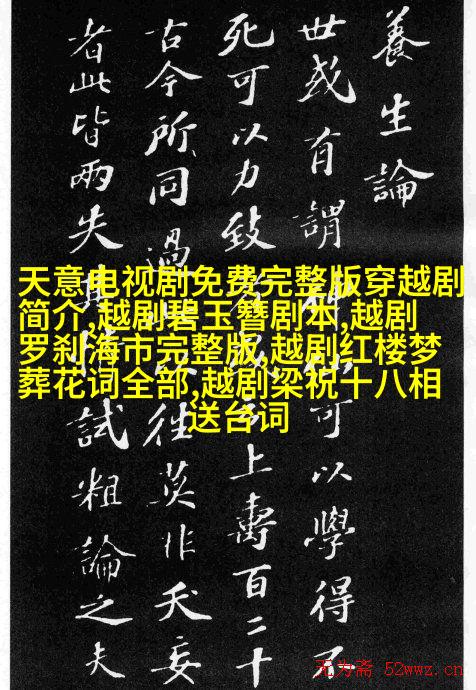 養生論
世或有謂可以學得不
死可以力致上壽百二十
古今所同過往莫非夭妄
者此皆兩失試粗論之夫
天意电视剧免费完整版穿越剧
简介,越剧碧玉簪剧本,越剧
罗刹海市完整版,越剧红楼梦
葬花词全部,越剧梁祝十八相
送台词
无为斋 52wwz.cn